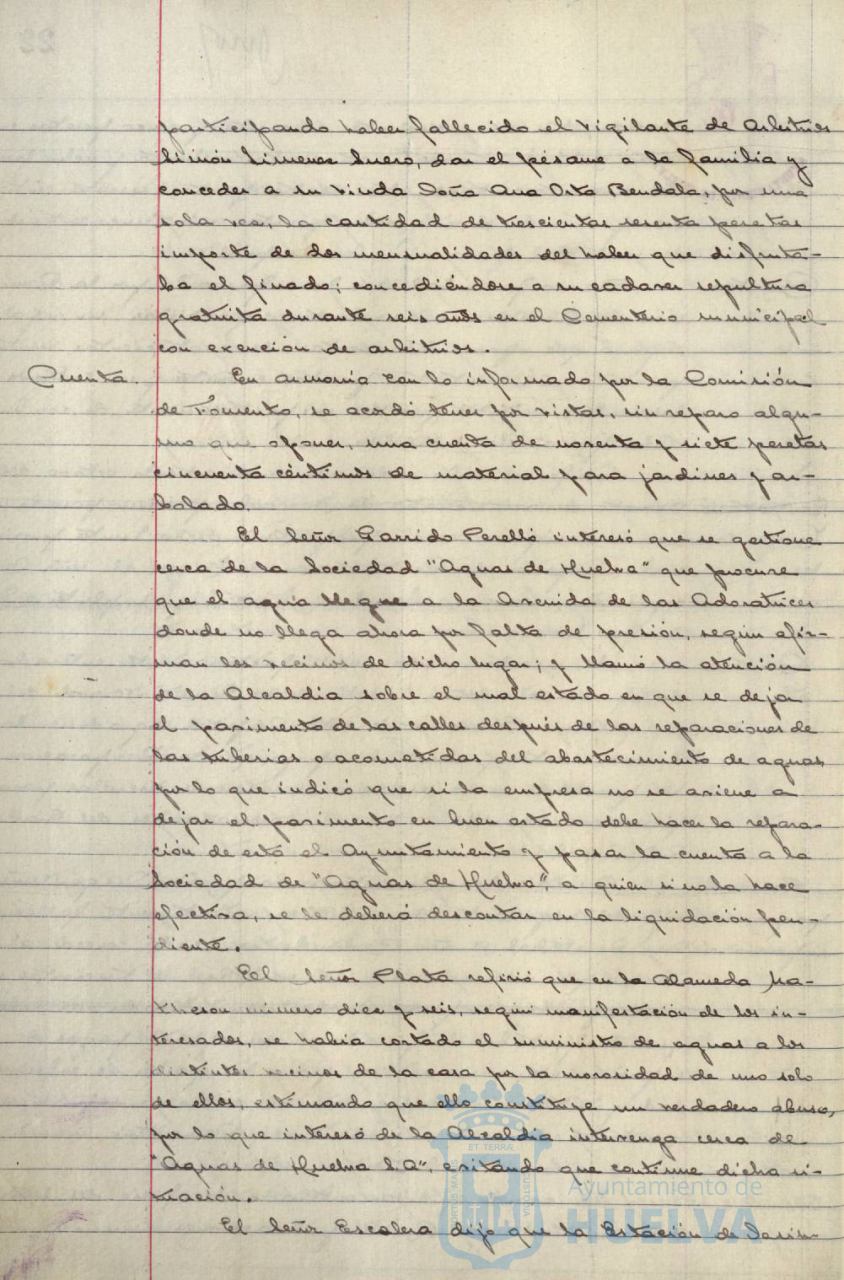 participando haber fallecido el vigilante de Arbitrios
Simón Limenez Suero, dar el pésame a la familia y
conceder a su viuda Doña Ana Orta Bendala, por una
sola vez, la cantidad de trescientas sesenta pesetas
importe de dos mensualidades del haber que disfruta-
ba el finado; concediéndose a su cadaver sepultura
gratuita durante seis años en el Cementerio municipal
con exención de arbitrios.
Cuenta. En armonia con lo informado por la Comisión
de Fomento, se acordó tener por vistas, sin reparo algu-
no que oponer, una cuenta de noventa y siete pesetas
cincuenta céntimos de material para jardines y ar-
bolado.
El Señor Garrido Perelló interesó que se gestione
cerca de la Sociedad "Aguas de Huelva" que procure
que el agua llegue a la Avenida de las Adoratrices
donde no llega ahora por falta de presión, según afir-
man los vecinos de dicho lugar; y llamó la atención
de la Alcaldia sobre el mal estado en que se deja
el pavimento de las calles después de las reparaciones de
las tuberias o acometidas del abastecimiento de aguas,
por lo que indicó que si la empresa no se aviene a
dejar el pavimento en buen estado debe hacer la repara-
ción de este el Ayuntamiento y pasar la cuenta a la
Sociedad de "Aguas de Huelva", a quien si no la hace
efectiva, se le deberá descontar en la liquidación pen-
diente.
El Señor Plata refirió que en la Alameda Ma-
theson número diez y seis, según manifestación de los in-
teresados, se habia cortado el suministro de aguas a los
distintos vecinos de la casa por la morosidad de uno solo
de ellos, estimando que ello constituye un verdadero abuso,
por lo que interesó de la Alcaldia intervenga cerca de
"Aguas de Huelva S.A", evitando que continue dicha si-
tuación.
El Señor Escalera dijo que la Estación de
Ayuntamiento de
HUELVA